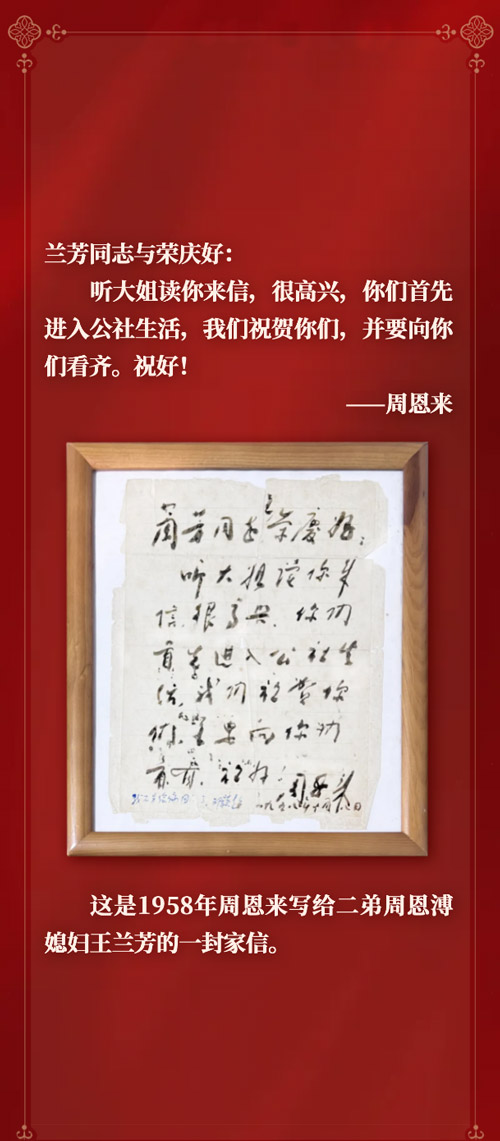 兰芳同志与荣庆好：
听大姐读你来信，很高兴，你们首先
进入公社生活，我们祝贺你们，并要向你
们看齐。祝好！
——周恩来
蘭芳同志与荣慶好：
听大姐读你来
信，很高兴，你们
首先进入公社生
活，我们祝贺你
们，并要向你们
看齐。祝好！
周恩来
这是1958年周恩来写给二弟周恩溥
媳妇王兰芳的一封家信。